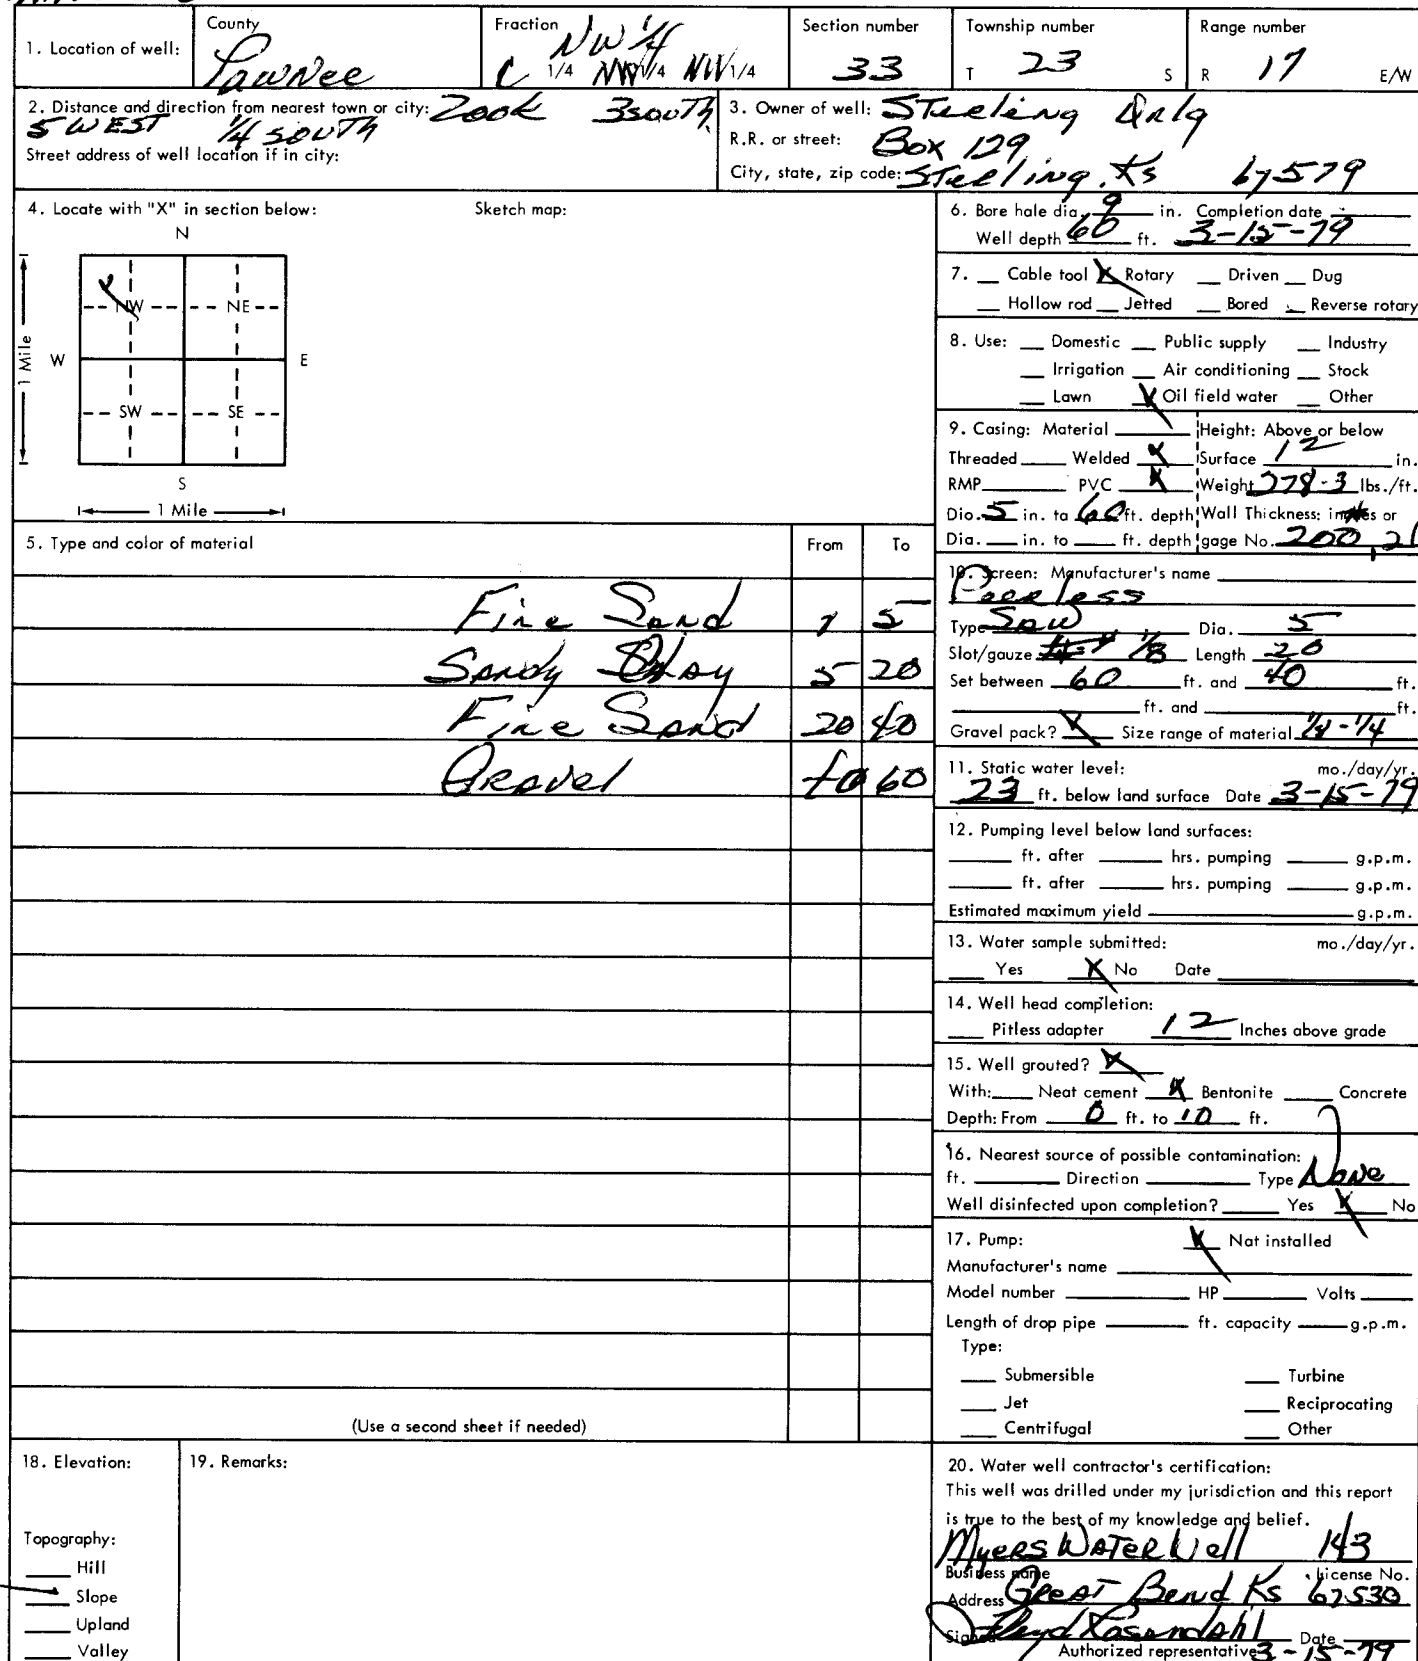 County
Fraction
NW 1/4
Section number
Township number
Range number
1. Location of well:
Pawnee
C 1/4 NW 1/4 NW 1/4
33
T 23 S
R 17 E/W
2. Distance and direction from nearest town or city: Zook 3 south
5 WEST 1/4 SOUTH
Street address of well location if in city:
3. Owner of well: Sterling Drlg
R.R. or street: Box 129
City, state, zip code: Sterling, Ks 67579
4. Locate with "X" in section below:
Sketch map:
N
NW NE
1 Mile
W E
SW SE
S
1 Mile
5. Type and color of material
From To
Fine Sand 1 5
Sandy Clay 5 20
Fine Sand 20 40
Gravel 40 60
(Use a second sheet if needed)
6. Bore hole dia. 9 in. Completion date
Well depth 60 ft. 3-15-79
7. Cable tool X Rotary Driven Dug
Hollow rod Jetted Bored Reverse rotary
8. Use: Domestic Public supply Industry
Irrigation Air conditioning Stock
Lawn X Oil field water Other
9. Casing: Material Height: Above or below
Threaded Welded X Surface 12 in.
RMP PVC X Weight 278-3 lbs./ft.
Dia. 5 in. to 60 ft. depth Wall Thickness: inches or
Dia. in. to ft. depth gage No. 200, 21
10. Screen: Manufacturer's name
Peerless
Type Saw Dia. 5
Slot/gauze 1/8 Length 20
Set between 60 ft. and 40 ft.
ft. and ft.
Gravel pack? X Size range of material 1/8-1/4
11. Static water level: mo./day/yr.
23 ft. below land surface Date 3-15-79
12. Pumping level below land surfaces:
ft. after hrs. pumping g.p.m.
ft. after hrs. pumping g.p.m.
Estimated maximum yield g.p.m.
13. Water sample submitted: mo./day/yr.
Yes X No Date
14. Well head completion:
Pitless adapter 12 Inches above grade
15. Well grouted? X
With: Neat cement X Bentonite Concrete
Depth: From 0 ft. to 10 ft.
16. Nearest source of possible contamination:
ft. Direction Type None
Well disinfected upon completion? Yes X No
17. Pump: X Not installed
Manufacturer's name
Model number HP Volts
Length of drop pipe ft. capacity g.p.m.
Type:
Submersible Turbine
Jet Reciprocating
Centrifugal Other
18. Elevation:
Topography:
Hill
Slope
Upland
Valley
19. Remarks:
20. Water well contractor's certification:
This well was drilled under my jurisdiction and this report
is true to the best of my knowledge and belief.
Myers Water Well 143
Business name License No.
Address Great Bend Ks 67530
Signed Date
Authorized representative 3-15-79